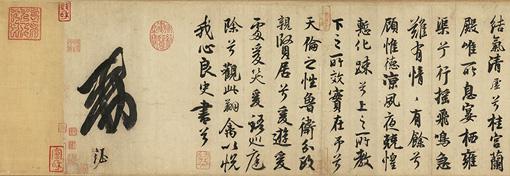 結氣清虛兮桂宮蘭
殿唯所息宴栖雍
渠兮行搖飛鳴急
難有情〻有餘兮
顧惟德涼夙夜兢惶
慙化踈兮上之所教
下之所效實在予兮
天倫之性魯衛分政
親賢居兮爰遊爰
處爰笑爰語巡庭
除兮觀此翔禽以悅
我心良史書兮
勅